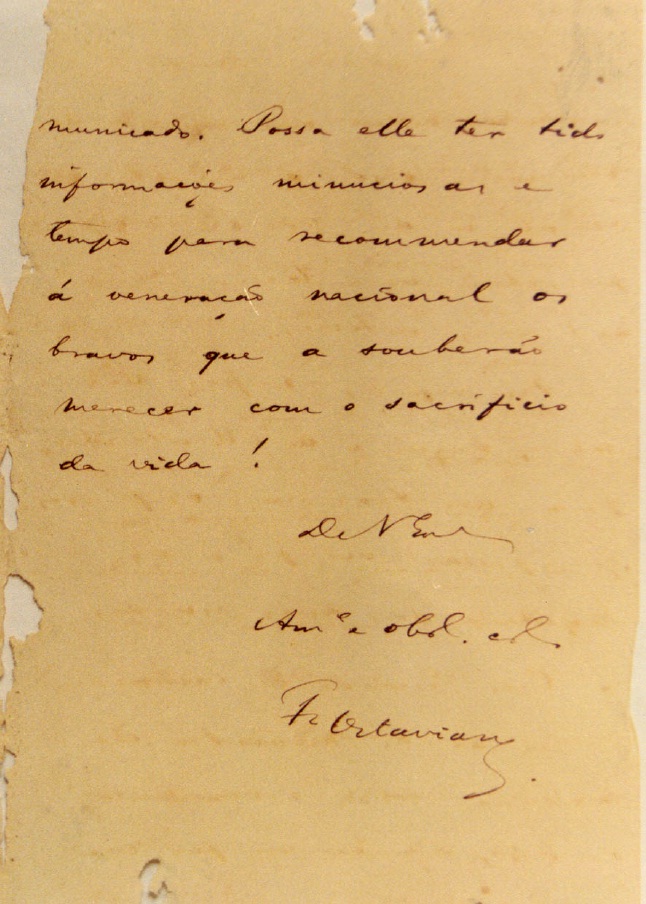 municado. Possa elle ter tido
informações minuciosas e
tempo para recommendar
á veneração nacional os
bravos que a souberão
merecer com o sacrificio
da vida !
De V Ex
Amº e obd. cr.
Fr Octaviano.